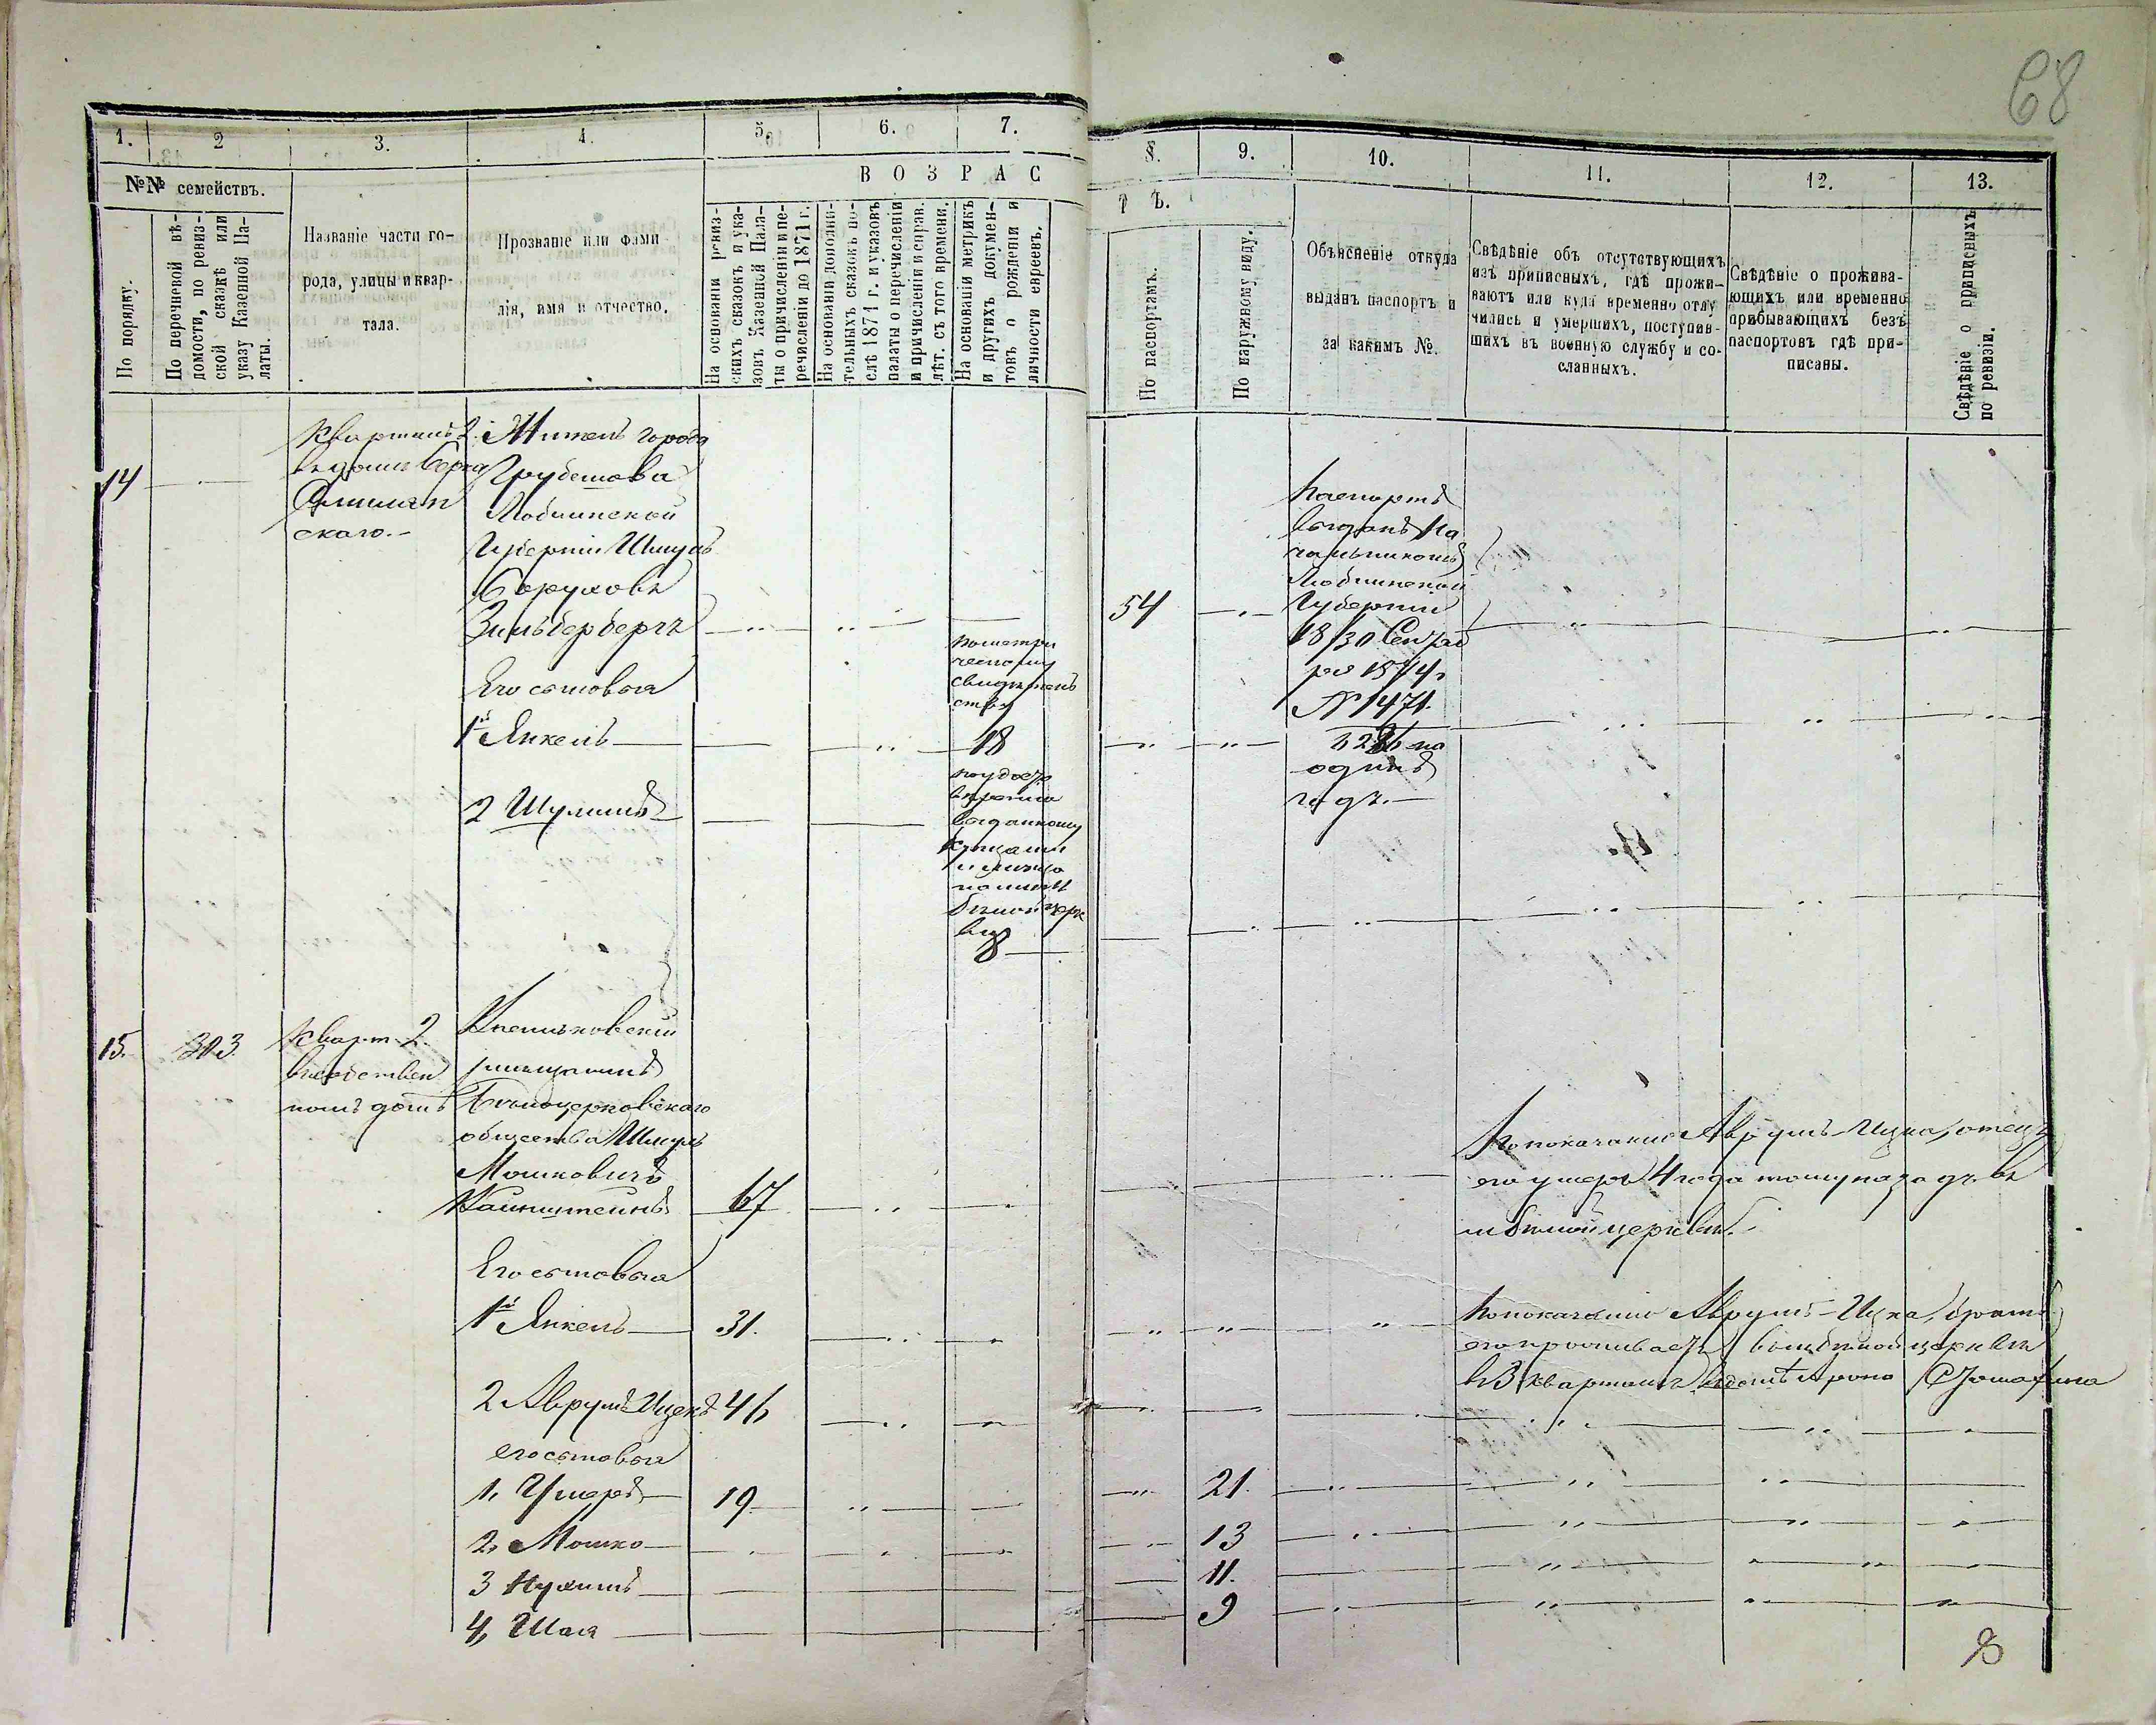 68
1.
2
3.
4.
5.
6.
7.
8.
9.
10.
11.
12.
13.
№№ семействъ.
По порядку.
По перечневой вѣ-
домости, по ревиз-
ской сказкѣ или
указу Казенной Па-
латы.
Названіе части го-
рода, улицы и квар-
тала.
Прозваніе или фами
лія, имя и отчество.
ВОЗРАС
ТЪ.
На основаніи ревиз-
скихъ сказокъ и ука-
зовъ Казенной Пала-
ты о причисленіи и пе-
речисленіи до 1871 г.
На основаніи дополни-
тельныхъ сказокъ по-
слѣ 1871 г. и указовъ
палаты о перечисленіи
и причисленіи и справ.
лѣт. съ того времени.
На основаніи метрикъ
и другихъ докумен-
товъ о рожденіи и
личности евреевъ.
По паспортамъ.
По наружному виду.
Объясненіе откуда
выданъ паспортъ и
за какимъ №.
Свѣдѣніе объ отсутствующихъ
изъ приписныхъ, гдѣ прожи-
ваютъ или куда временно отлу
чились и умершихъ, поступив-
шихъ въ военную службу и со-
сланныхъ.
Свѣдѣніе о прожива-
ющихъ или временно
прибывающихъ безъ
паспортовъ гдѣ при-
писаны.
Свѣдѣніе о приписныхъ
по ревизіи.
14
Кварталъ 2.
въ домѣ
скаго.
Житель города
Грубешова
Люблинской
Губерніи Шмуль
Боруховъ
Зильберберъ
54
Паспортъ
выданъ На
чальникомъ
Люблинской
Губерніи
18/30 Сентяб
ря 1874 г
№ 1471.
на
одинъ
годъ.
Его сыновья
1й Янкель
по метри
ческому
свидѣтель
ству
18
2 Шулимъ
по удосто
вѣренію
выданному
купцами
и мѣща
нами
бѣлой церк
ви
8
15.
303
Кварт. 2
въ собствен
номъ домѣ
мѣщанинъ
Бѣлоцерковскаго
общества Шмуль
Мошковичъ
67
По показанію Аврумъ-Ицка, отецъ
его умеръ 4 года тому назадъ въ
м бѣлой церквѣ.
Его сыновья
1й Янкель
31.
По показанію Аврумъ-Ицка, братъ
его проживаетъ въ м бѣлой церкви
въ 3 кварталѣ въ домѣ Арона
2 Аврумъ Ицекъ
46
его сыновья
1, Ушеръ
19
21.
2, Мошко
13
3 Нухимъ
11.
4, Шая
9
8